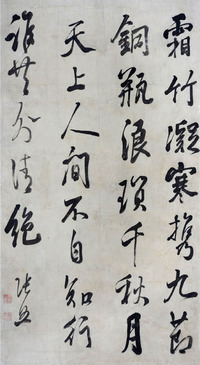 霜竹凝寒携九節
銅瓶浪瑣千秋月
天上人間不自知行
誰共清絶
張照